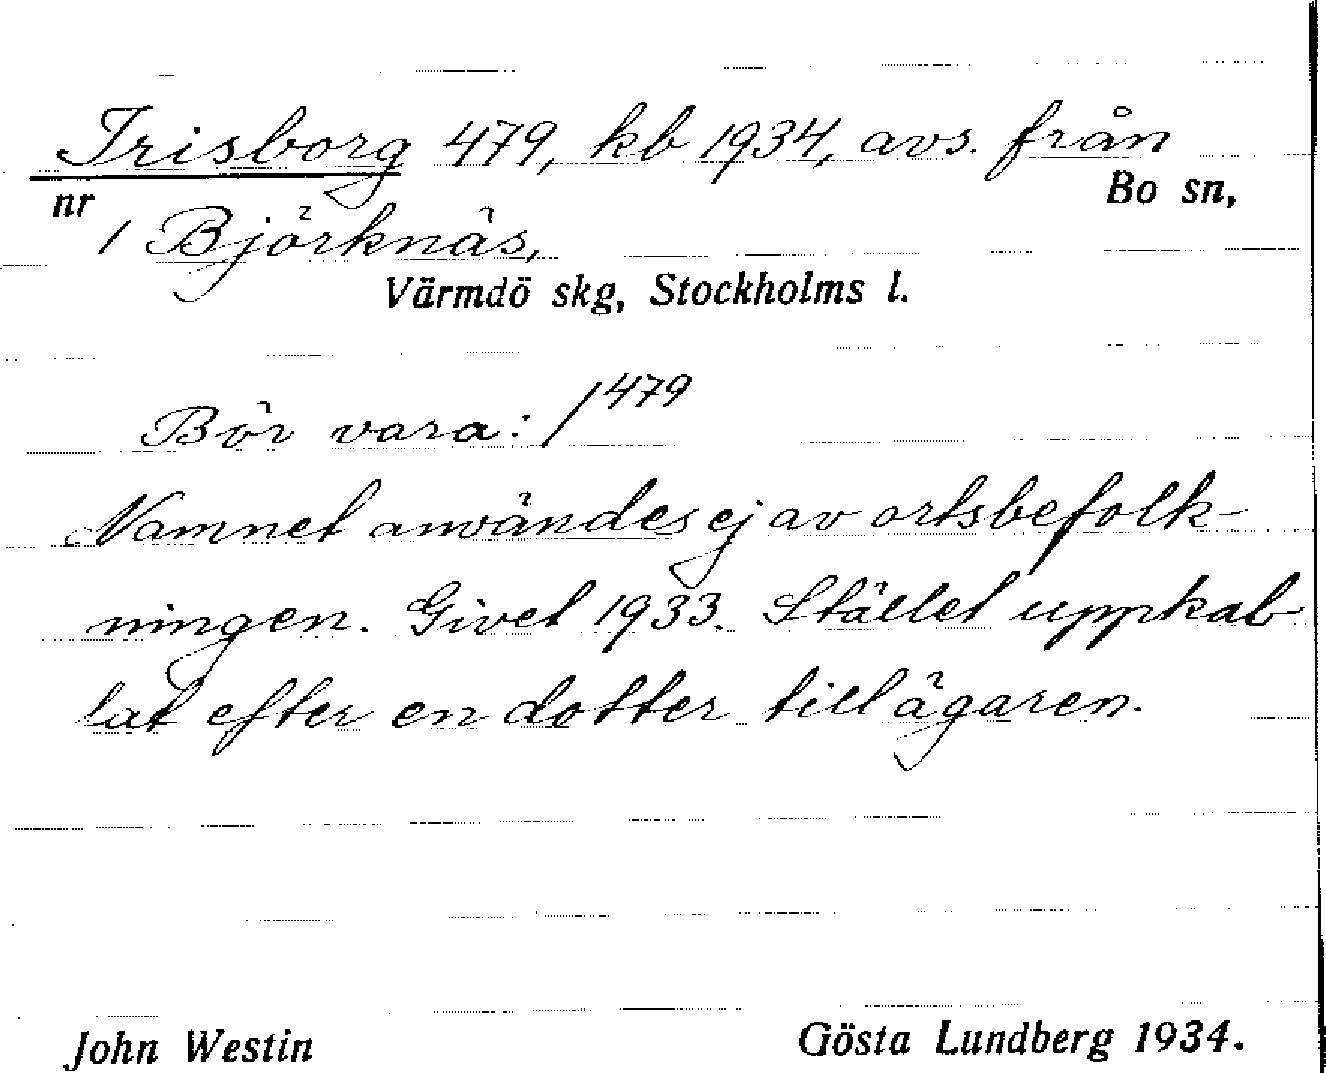 Irisborg 479, kb 1934, avs. från
nr Bo sn,
1 Björknäs,
Värmdö skg, Stockholms l.
Bör vara: 1⁴⁷⁹
Namnet användes ej av ortsbefolk-
ningen. Givet 1933. Stället uppkal-
lat efter en dotter till ägaren.
John Westin Gösta Lundberg 1934.